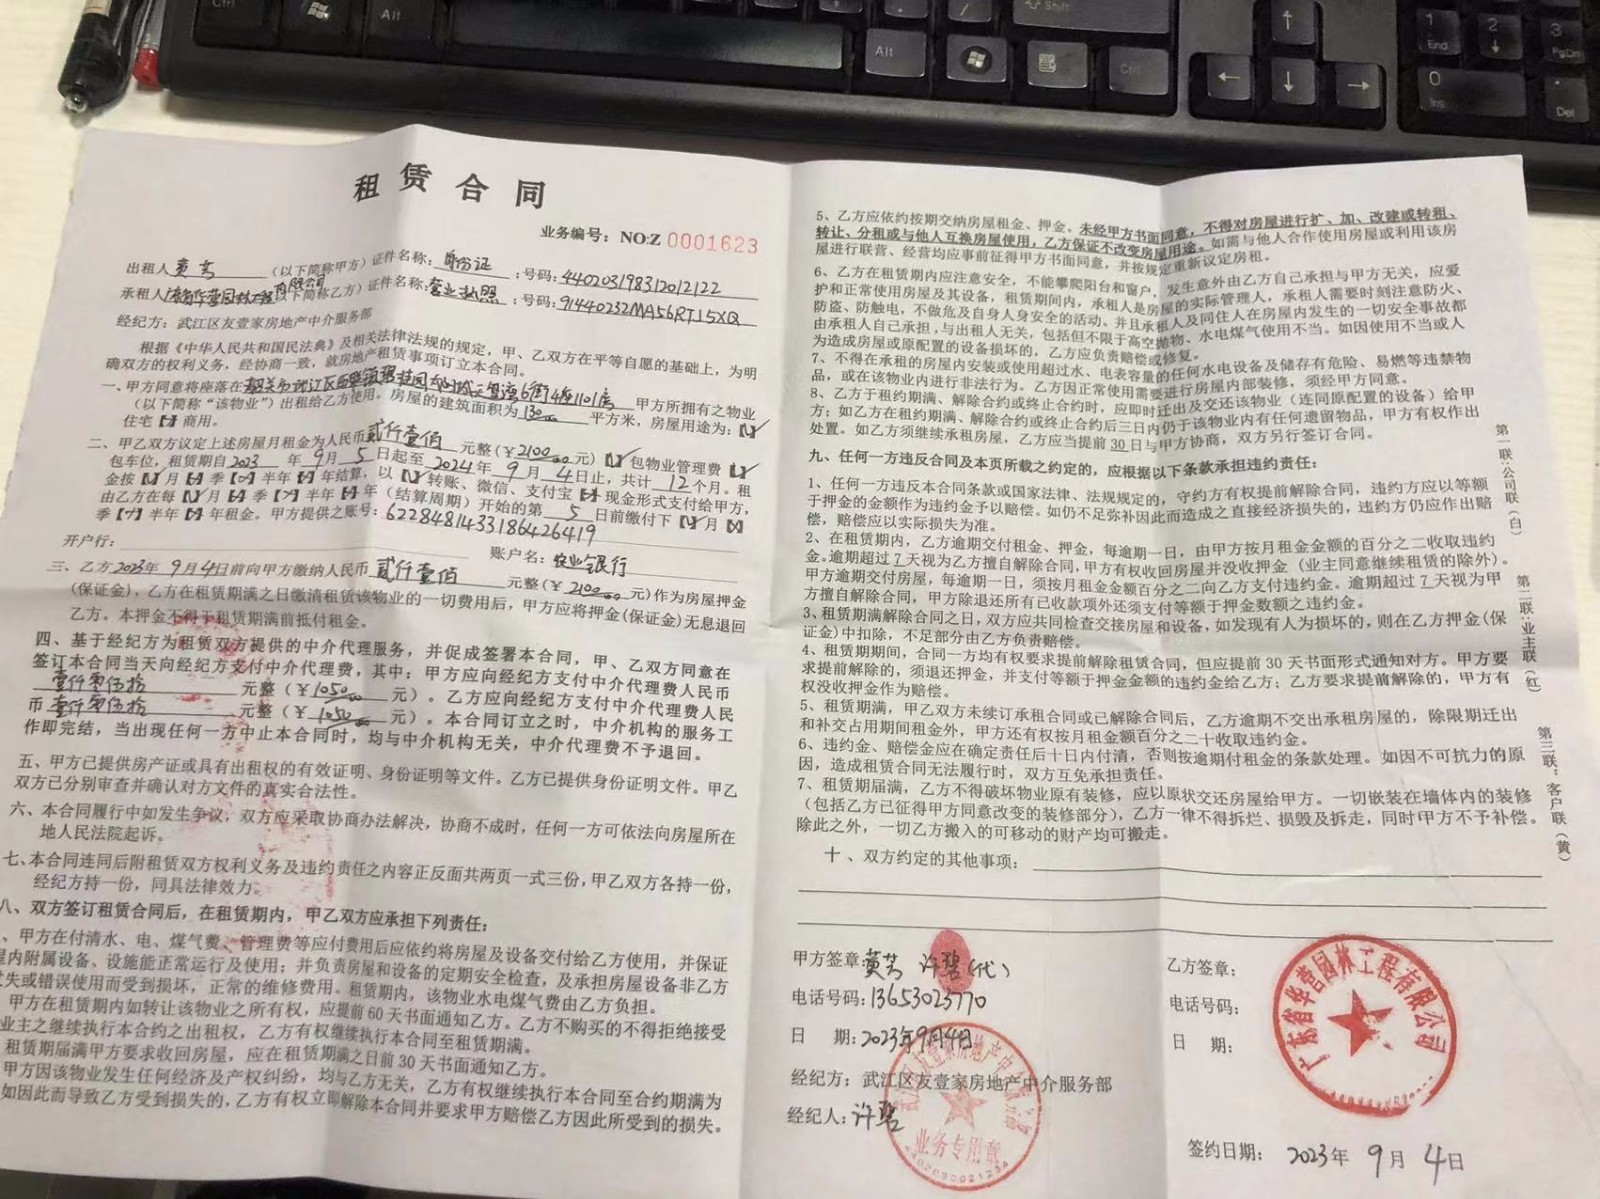 租赁合同
业务编号：NO:Z 0001623
出租人 黄芳 （以下简称甲方）证件名称：身份证 ；号码：440203198312012122
承租人 广东省华营园林工程有限公司（以下简称乙方）证件名称：营业执照 ；号码：91440232MA56RTJ5XQ
经纪方：武江区友壹家房地产中介服务部
根据《中华人民共和国民法典》及相关法律法规的规定，甲、乙双方在平等自愿的基础上，为明
确双方的权利义务，经协商一致，就房地产租赁事项订立本合同。
一、甲方同意将座落在 韶关市武江区西联镇碧桂园太阳城天玺湾6街4座1101房 甲方所拥有之物业
（以下简称“该物业”）出租给乙方使用。房屋的建筑面积为 130 平方米，房屋用途为：【✓】
住宅【✗】商用。
二、甲乙双方议定上述房屋月租金为人民币 贰仟壹佰 元整（￥2100.00元）【✓】包物业管理费【✓】
包车位，租赁期自 2023 年 9 月 5 日起至 2024 年 9 月 4 日止，共计 12 个月。租
金按【✓】月【✗】季【✗】半年【✗】年结算，以【✓】转账、微信、支付宝【✗】现金形式支付给甲方，
由乙方在每【✓】月【✗】季【✗】半年【✗】年（结算周期）开始的第 5 日前缴付下【✓】月【✗】
季【✗】半年【✗】年租金。甲方提供之账号：6228481433186426419
开户行： 账户名：农业银行
三、乙方 2023年 9月4日前向甲方缴纳人民币 贰仟壹佰 元整（￥2100.00元）作为房屋押金
（保证金），乙方在租赁期满之日缴清租赁该物业的一切费用后，甲方应将押金（保证金）无息退回
乙方。本押金不得于租赁期满前抵付租金。
四、基于经纪方为租赁双方提供的中介代理服务，并促成签署本合同，甲、乙双方同意在
签订本合同当天向经纪方支付中介代理费，其中：甲方应向经纪方支付中介代理费人民币
壹仟零伍拾 元整（￥1050.00元）。乙方应向经纪方支付中介代理费人民
币 壹仟零伍拾 元整（￥1050.00元）。本合同订立之时，中介机构的服务工
作即完结，当出现任何一方中止本合同时，均与中介机构无关，中介代理费不予退回。
五、甲方已提供房产证或具有出租权的有效证明、身份证明等文件。乙方已提供身份证明文件。甲乙
双方已分别审查并确认对方文件的真实合法性。
六、本合同履行中如发生争议，双方应采取协商办法解决，协商不成时，任何一方可依法向房屋所在
地人民法院起诉。
七、本合同连同后附租赁双方权利义务及违约责任之内容正反面共两页一式三份，甲乙双方各持一份，
经纪方持一份，同具法律效力。
八、双方签订租赁合同后，在租赁期内，甲乙双方应承担下列责任：
、甲方在付清水、电、煤气费、管理费等应付费用后应依约将房屋及设备交付给乙方使用，并保证
屋内附属设备、设施能正常运行及使用；并负责房屋和设备的定期安全检查，及承担房屋设备非乙方
过失或错误使用而受到损坏，正常的维修费用。租赁期内，该物业水电煤气费由乙方负担。
甲方在租赁期内如转让该物业之所有权，应提前60天书面通知乙方。乙方不购买的不得拒绝接受
业主之继续执行本合约之出租权，乙方有权继续执行本合同至租赁期满。
租赁期届满甲方要求收回房屋，应在租赁期满之日前30天书面通知乙方。
甲方因该物业发生任何经济及产权纠纷，均与乙方无关，乙方有权继续执行本合同至合约期满为
如因此而导致乙方受到损失的，乙方有权立即解除本合同并要求甲方赔偿乙方因此所受到的损失。
5、乙方应依约按期交纳房屋租金、押金。未经甲方书面同意，不得对房屋进行扩、加、改建或转租、
转让、分租或与他人互换房屋使用，乙方保证不改变房屋用途。如需与他人合作使用房屋或利用该房
屋进行联营、经营均应事前征得甲方书面同意，并按规定重新议定房租。
6、乙方在租赁期内应注意安全，不能攀爬阳台和窗户，发生意外由乙方自己承担与甲方无关，应爱
护和正常使用房屋及其设备，租赁期间内，承租人是房屋的实际管理人，承租人需要时刻注意防火、
防盗、防触电，不做危及自身人身安全的活动。并且承租人及同住人在房屋内发生的一切安全事故都
由承租人自己承担，与出租人无关，包括但不限于高空抛物、水电煤气使用不当。如因使用不当或人
为造成房屋或原配置的设备损坏的，乙方应负责赔偿或修复。
7、不得在承租的房屋内安装或使用超过水、电表容量的任何水电设备及储存有危险、易燃等违禁物
品，或在该物业内进行非法行为。乙方因正常使用需要进行房屋内部装修，须经甲方同意。
8、乙方于租约期满、解除合约或终止合约时，应即时迁出及交还该物业（连同原配置的设备）给甲
方；如乙方在租约期满、解除合约或终止合约后三日内仍于该物业内有任何遗留物品，甲方有权作出
处置。如乙方须继续承租房屋，乙方应当提前30日与甲方协商，双方另行签订合同。
九、任何一方违反合同及本页所载之约定的，应根据以下条款承担违约责任：
1、任何一方违反本合同条款或国家法律、法规规定的，守约方有权提前解除合同，违约方应以等额
于押金的金额作为违约金予以赔偿。如仍不足弥补因此而造成之直接经济损失的，违约方仍应作出赔
偿，赔偿应以实际损失为准。
2、在租赁期内，乙方逾期交付租金、押金，每逾期一日，由甲方按月租金金额的百分之二收取违约
金。逾期超过7天视为乙方擅自解除合同，甲方有权收回房屋并没收押金（业主同意继续租赁的除外）。
甲方逾期交付房屋，每逾期一日，须按月租金金额百分之二向乙方支付违约金。逾期超过7天视为甲
方擅自解除合同，甲方除退还所有已收款项外还须支付等额于押金数额之违约金。
3、租赁期满解除合同之日，双方应共同检查交接房屋和设备，如发现有人为损坏的，则在乙方押金（保
证金）中扣除，不足部分由乙方负责赔偿。
4、租赁期间，合同一方均有权要求提前解除租赁合同，但应提前30天书面形式通知对方。甲方要
求提前解除的，须退还押金，并支付等额于押金金额的违约金给乙方；乙方要求提前解除的，甲方有
权没收押金作为赔偿。
5、租赁期满，甲乙双方未续订承租合同或已解除合同后，乙方逾期不交出承租房屋的，除限期迁出
和补交占用期间租金外，甲方还有权按月租金额百分之二十收取违约金。
6、违约金、赔偿金应在确定责任后十日内付清，否则按逾期付租金的条款处理。如因不可抗力的原
因，造成租赁合同无法履行时，双方互免承担责任。
7、租赁期届满，乙方不得破坏物业原有装修，应以原状交还房屋给甲方。一切嵌装在墙体内的装修
（包括乙方已征得甲方同意改变的装修部分），乙方一律不得拆烂、损毁及拆走，同时甲方不予补偿。
除此之外，一切乙方搬入的可移动的财产均可搬走。
十、双方约定的其他事项：
甲方签章：黄芳 许碧（代）
电话号码：13653023770
日 期：2023年9月4日
经纪方：武江区友壹家房地产中介服务部
经纪人：许碧
武江区友壹家房地产中介服务部
业务专用章
乙方签章：
电话号码：
日 期：
广东省华营园林工程有限公司
签约日期：2023年 9月 4日
第一联：公司联（白）
第二联：业主联（红）
第三联：客户联（黄）
Ctrl
Alt
Alt
Ctrl
Shift
1 End
2
3 PgDn
0 Ins
. Del